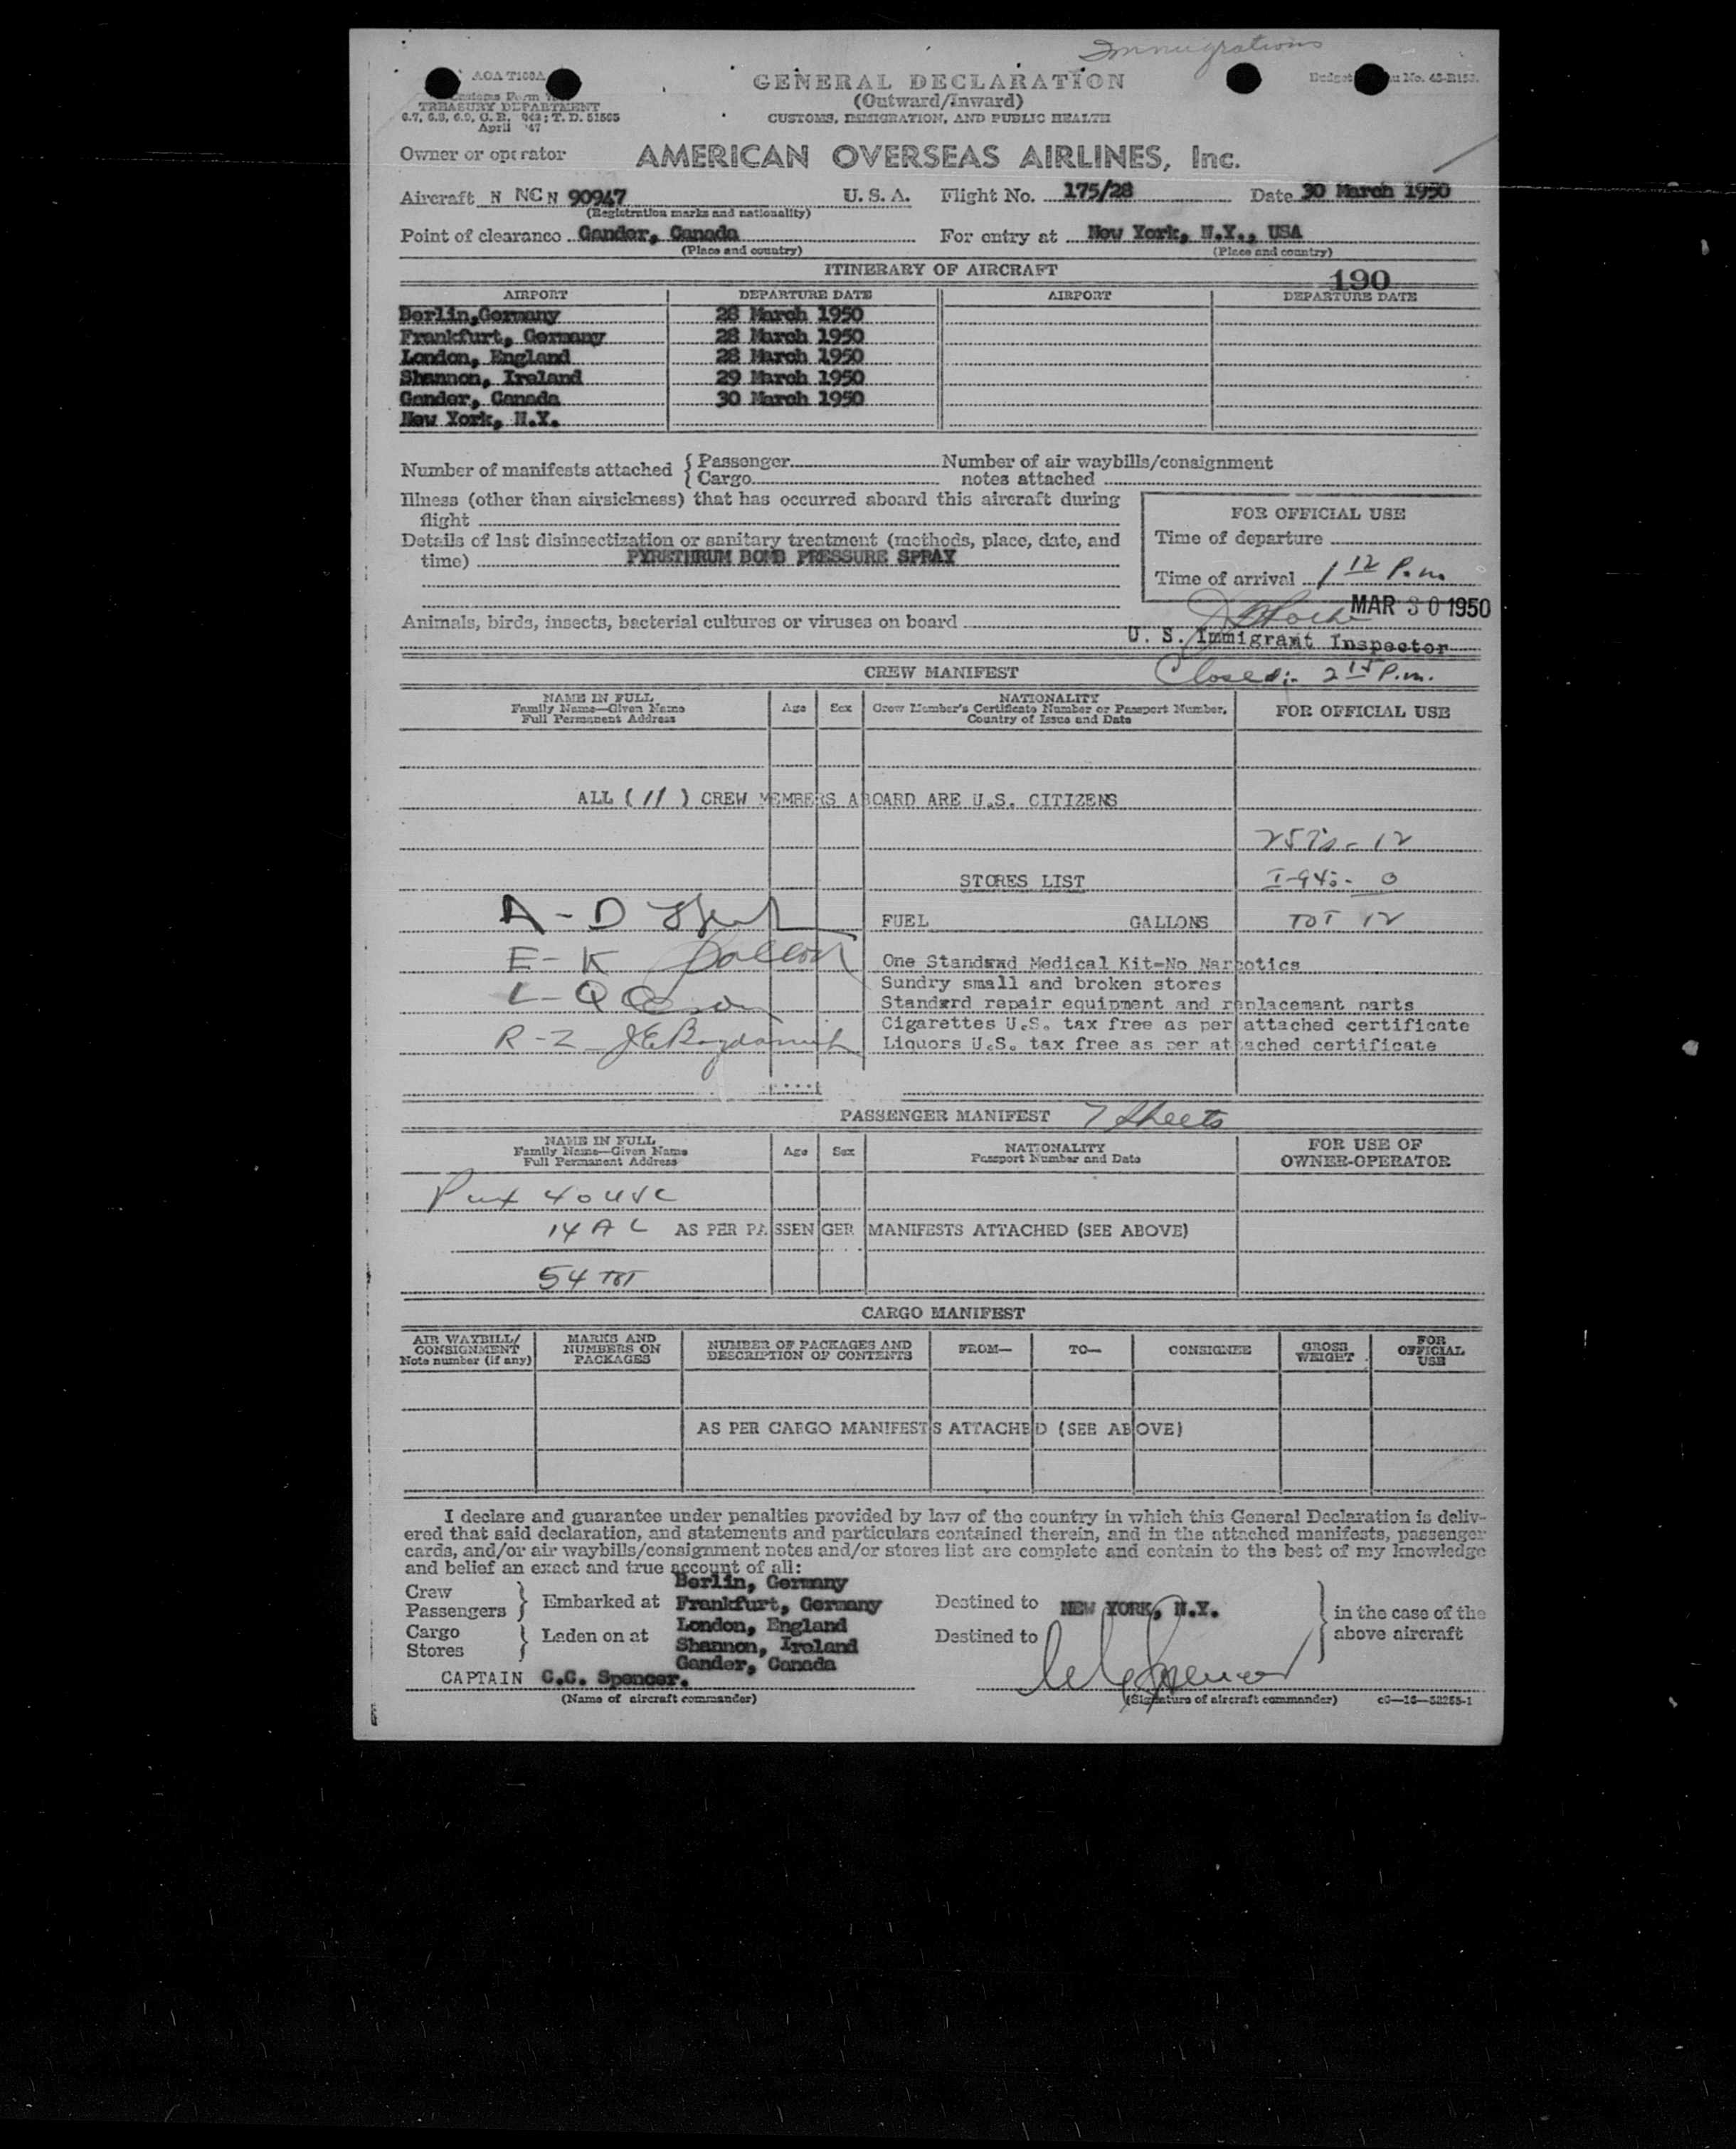 Immigrations
AOA T100A
Customs Form
TREASURY DEPARTMENT
6.7, 6.8, 6.9, C. R. 943; T. D. 51565
April '47
GENERAL DECLARATION
(Outward/Inward)
CUSTOMS, IMMIGRATION, AND PUBLIC HEALTH
Budget No.
Owner or operator AMERICAN OVERSEAS AIRLINES, Inc.
Aircraft N NC N 90947 U. S. A. Flight No. 175/28 Date 30 March 1950
(Registration marks and nationality)
Point of clearance Gander, Canada For entry at New York, N.Y., USA
(Place and country) (Place and country)
ITINERARY OF AIRCRAFT 190
AIRPORT DEPARTURE DATE AIRPORT DEPARTURE DATE
Berlin,Germany 28 March 1950
Frankfurt, Germany 28 March 1950
London, England 28 March 1950
Shannon, Ireland 29 March 1950
Gander, Canada 30 March 1950
New York, N.Y.
Number of manifests attached { Passenger Number of air waybills/consignment
Cargo notes attached
Illness (other than airsickness) that has occurred aboard this aircraft during
flight
Details of last disinsectization or sanitary treatment (methods, place, date, and
time) PYRETHRUM BOMB PRESSURE SPRAY
FOR OFFICIAL USE
Time of departure
Time of arrival 1 12 P.m.
MAR 30 1950
Animals, birds, insects, bacterial cultures or viruses on board
U. S. Immigrant Inspector
CREW MANIFEST Closed:- 2 15 P.m.
NAME IN FULL
Family Name—Given Name
Full Permanent Address
Age Sex
NATIONALITY
Crew Member's Certificate Number or Passport Number,
Country of Issue and Date
FOR OFFICIAL USE
ALL ( 11 ) CREW MEMBERS ABOARD ARE U.S. CITIZENS
257s - 12
STORES LIST I-94s- 0
A - D
FUEL GALLONS TOT 12
E - K
One Standard Medical Kit-No Narcotics
Sundry small and broken stores
L - Q
Standard repair equipment and replacement parts
Cigarettes U.S. tax free as per attached certificate
R - Z
Liquors U.S. tax free as per attached certificate
PASSENGER MANIFEST 7 Sheets
NAME IN FULL
Family Name—Given Name
Full Permanent Address
Age Sex
NATIONALITY
Passport Number and Date
FOR USE OF
OWNER-OPERATOR
40 USC
14 A L AS PER PASSENGER MANIFESTS ATTACHED (SEE ABOVE)
54 TOT
CARGO MANIFEST
AIR WAYBILL/
CONSIGNMENT
Note number (if any)
MARKS AND
NUMBERS ON
PACKAGES
NUMBER OF PACKAGES AND
DESCRIPTION OF CONTENTS
FROM— TO— CONSIGNEE
GROSS
WEIGHT
FOR
OFFICIAL
USE
AS PER CARGO MANIFESTS ATTACHED (SEE ABOVE)
I declare and guarantee under penalties provided by law of the country in which this General Declaration is deliv-
ered that said declaration, and statements and particulars contained therein, and in the attached manifests, passenger
cards, and/or air waybills/consignment notes and/or stores list are complete and contain to the best of my knowledge
and belief an exact and true account of all:
Crew
Passengers } Embarked at
Cargo
Stores } Laden on at
Berlin, Germany
Frankfurt, Germany
London, England
Shannon, Ireland
Gander, Canada
Destined to NEW YORK, N.Y.
Destined to
in the case of the
above aircraft
CAPTAIN C.C. Spencer.
(Name of aircraft commander) (Signature of aircraft commander)